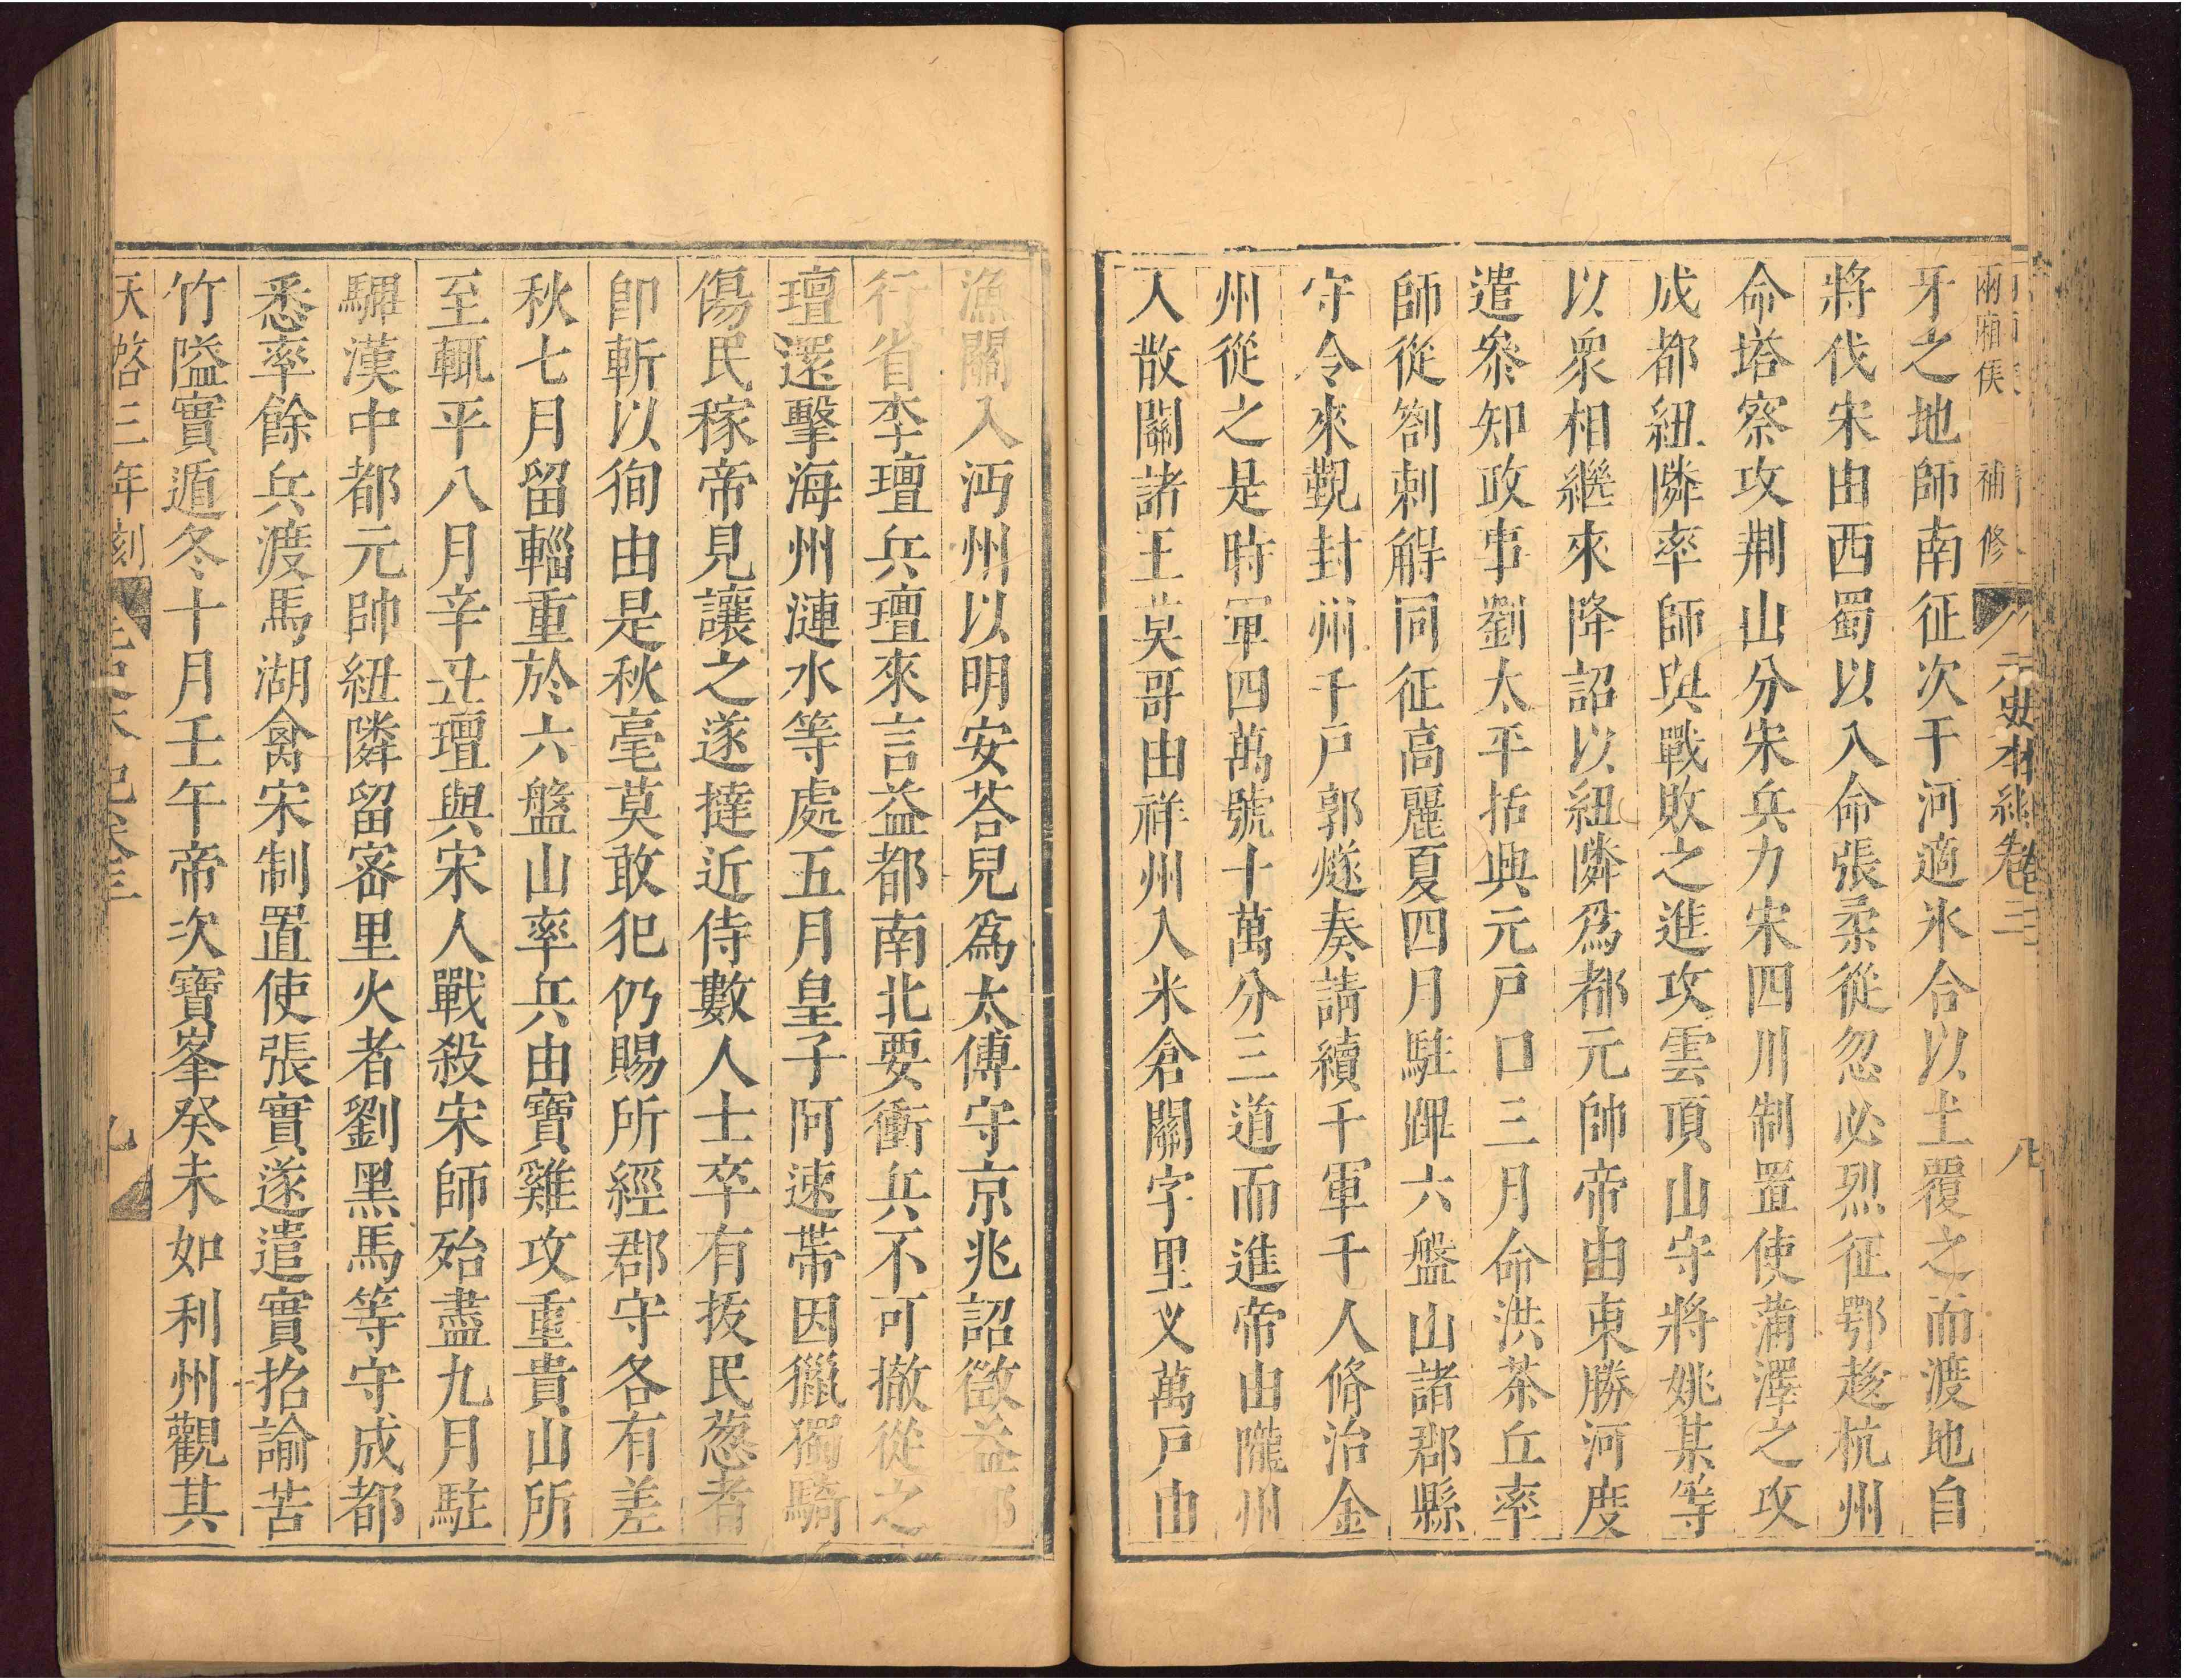 兩廂俟 補修 元史本紀卷三 八
牙之地師南征次于河適氷合以土覆之而渡地自
將伐宋由西蜀以入命張柔從忽必烈征鄂趍杭州
命塔察攻荆山分宋兵力宋四川制置使蒲澤之攻
成都紐隣率師與戰敗之進攻雲頂山守將姚某等
以衆相繼來降詔以紐隣爲都元帥帝由東勝河度
遣叅知政事劉太平括興元戸口三月命洪茶丘率
師從劄剌䚟同征高麗夏四月駐蹕六盤山諸郡縣
守令來覲封州千戸郭燧奏請續千軍千人脩治金
州從之是時軍四萬號十萬分三道而進帝由隴州
入散關諸王莫哥由祥州入米倉關孛里义萬戸由
漁關入沔州以明安荅兒爲太傅守京兆詔徵益都
行省李璮兵璮來言益都南北要衝兵不可撤從之
璮還擊海州漣水等處五月皇子阿速帶因獵獨騎
傷民稼帝見讓之遂撻近侍數人士卒有拔民葱者
卽斬以狥由是秋毫莫敢犯仍賜所經郡守各有差
秋七月留輜重於六盤山率兵由寶雞攻重貴山所
至輒平八月辛丑璮與宋人戰殺宋師殆盡九月駐
驆漢中都元帥紐隣留密里火者劉黑馬等守成都
悉率餘兵渡馬湖禽宋制置使張實遂遣實招諭苦
竹隘實遁冬十月壬午帝次寶峯癸未如利州觀其
天啓三年刻 元史本紀卷三 九